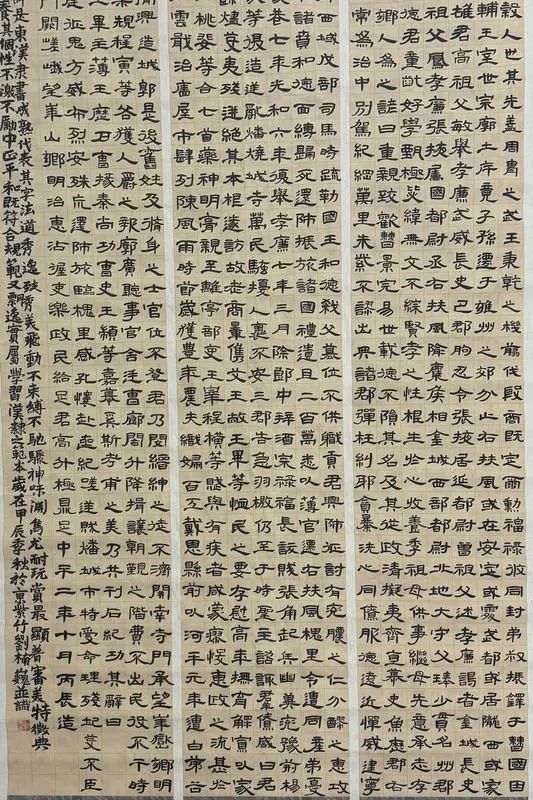 穀人也其先盖周胄之武王秉乾之機翦伐殷商既定爾勳福祿攸同封弟叔振鐸于曹國因
輔王室世宗廓土斥竟子孫遷于雍州之郊分止右扶風或在安定或處武都或居隴西或家
雄君高祖父敏舉孝廉武威長史巴郡朐忍令張掖居延都尉曾祖父述孝廉謁者金城長史
祖父鳳孝廉張掖屬國都尉丞右扶風隃麋侯相金城西部都尉北地大守父琫少貫名州郡
德君童齔好學甄極毖緯無文不綜賢孝之性根生於心收養季祖母供事繼母先意承志存亡
鄉人為之諺曰重親致歡曹景完易世載德不隕其名及其從政清擬夷齊直慕史魚歷郡右
常為治中別駕紀綱萬里朱紫不謬出典諸郡彈枉糾邪貪暴洗心同僚服德遠近憚威建寧
西域戊部司馬時疏勒國王和德弑父篡位不供職貢君興師征討有兖膿之仁分醪之惠攻
諸賁和德面縛歸死還師振旅諸國禮遺且二百萬悉以薄官遷右扶風槐里令遭同產弟憂
家巷七年光和六年復舉孝廉七年三月除郎中拜酒泉祿福長訞賊張角起兵幽冀兖豫荊楊
等復造逆亂燔燒城寺萬民騷擾人裹不安三郡告急羽檄仍至于時聖主諮諏羣僚咸曰君
燼芟夷殘迸絕其本根遂訪故老商量儁艾王敞王畢等恤民之要存慰高年撫育鰥寡以家
桃婓等合七首藥神明膏親至離亭部吏王皋程橫等賦與有疾者咸蒙瘳悛惠政之流甚
雲戢治廧屋市肆列陳風雨時節歲獲豐年農夫織婦百工戴恩縣前以河平元年遭白茅谷
興造城郭是後舊姓及脩身之士官位不登君乃閔縉紳之徒不濟開南寺門承望華嶽鄉明
規程寅等各獲人爵之報廓廣聽事官舍廷曹廊閣升降揖讓朝覲之階費不出民役不干時
王畢主薄王歷戶曹掾秦尚功曹史王顓等嘉慕奚斯考甫之美乃共刊石紀功其辭曰
征鬼方威布烈安殊荒還師旅臨槐里感孔懷赴喪紀嗟逆賊燔城市特受命理殘圯芟不臣
門闕嵯峨望華山鄉明治惠沾渥吏樂政民給足君高升極鼎足中平二年十月丙辰造
是東漢隸書成熟代表其字法道秀逸致情美飛動不束縛不馳驟神味淵雋尤耐玩賞最顯著審美特徵典
其個性不激不厲中正平和既符合規範又飄逸實屬學習漢隸之範本歲在甲辰季秋於京紫竹劉楠巍並識